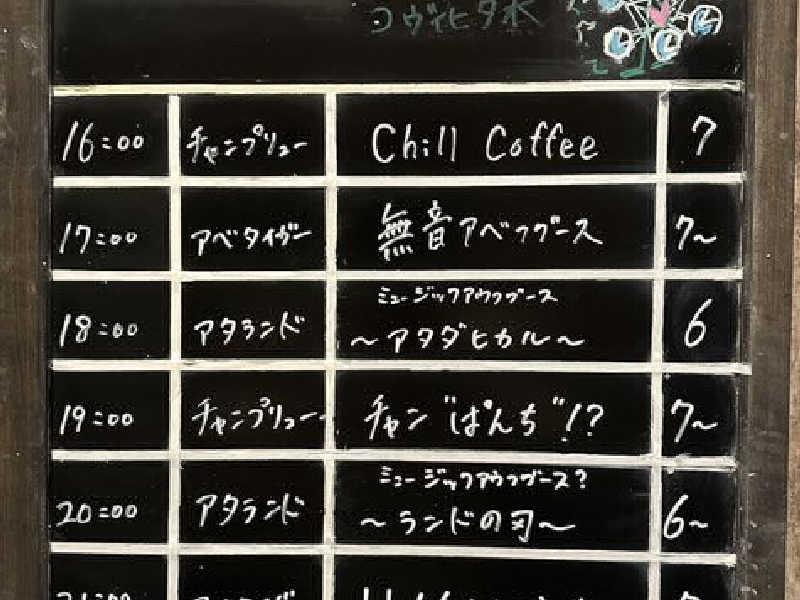 コヴィヒタ水
16:00 チャンプリュー Chill Coffee 7
17:00 アベタイガー 無音アベックブース 7~
ミュージックアウワブース
18:00 アタランド ~アタダヒカル~ 6
19:00 チャンプリュー チャン"ぱんち"!? 7~
ミュージックアウワブース?
20:00 アタランド ~ランドの~ 6~